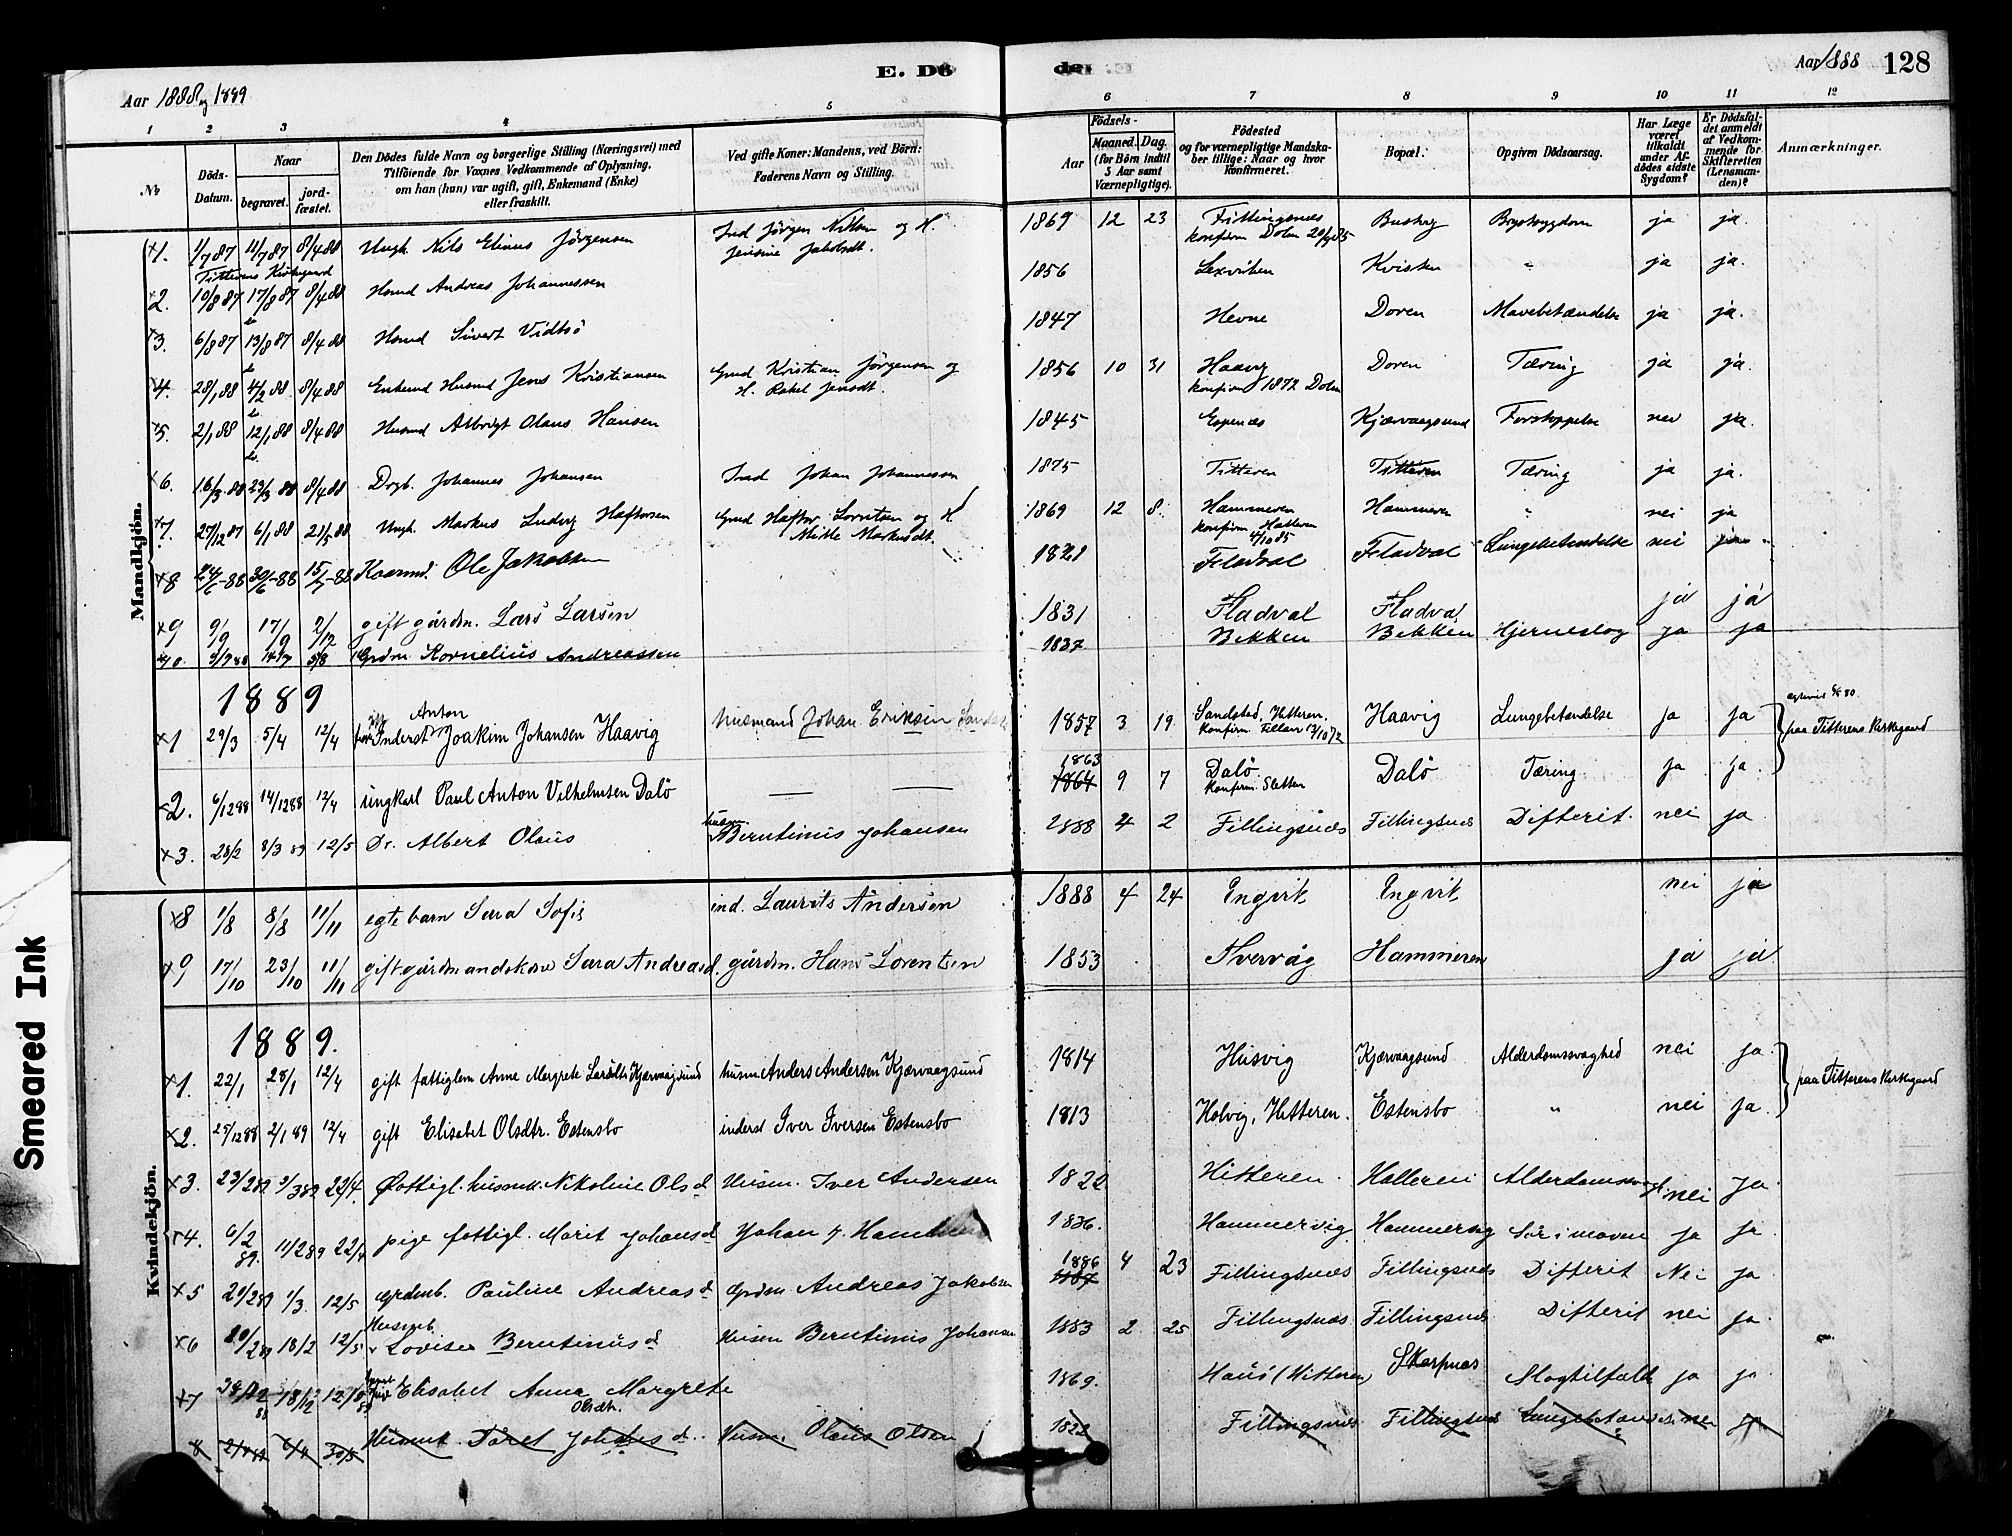 Aar 1888 og 1889
E. Dö
de
Aar 1888 128
1 2 3 4 5 6 7 8 9 10 11 12
No
Döds-Datum.
Naar
begravet.
jord-fæstet.
Den Dödes fulde Navn og borgerlige Stilling (Næringsvei) med Tilföiende for Voxnes Vedkommende af Oplysning, om han (hun) var ugift, gift, Enkemand (Enke) eller fraskilt.
Ved gifte Koner: Mandens, ved Börn: Faderens Navn og Stilling.
Födsels-
Aar
Maaned. Dag.
(for Börn indtil 5 Aar samt Værnepligtige).
Födested og for værnepligtige Mandskaber tillige: Naar og hvor konfirmeret.
Bopæl.
Opgiven Dödsaarsag.
Har Læge været tilkaldt under Afdödes sidste Sygdom?
Er Dödsfaldet anmeldt af Vedkommende for Skifteretten (Lensmanden)?
Anmærkninger.
Mandkjön.
+1. 1/7 87 11/7 87 8/4 88 Ungk. Nils Elinus Jörgensen Ind Jörgen Nilsen og H. Jensine Jakobsdt. 1869 12 23 Fillingsnes konfirm Dolm Buskug Brystsygdom ja ja.
Titterens Kirkegaard
+2. 10/8 87 17/8 87 8/4 88 Husmd Andreas Johannessen 1856 Lexviken Kvisten " ja ja.
+3. 6/8 87 13/8 87 8/4 88 Husmd Sivert Vidtsö 1847 Hevne Doren Mavebetændelse ja ja.
+4. 28/1 88 4/2 88 8/4 88 Enkemd Husmd Jens Kristiansen Grmd Kristian Jörgensen og H. Rakel Jensdt. 1856 10 31 Haavig konfirm 1872 Dolm Doren Tæring ja ja.
+5. 2/1 88 12/1 88 8/4 88 Husmd Albrigt Olaus Hansen 1845 Espenæs Kjærvaagsund Forstoppelse nei ja.
+6. 16/3 88 23/3 88 8/4 88 Drgb. Johannes Johansen Ind Johan Johannessen 1875 Titteren Titteren Tæring ja ja.
+7. 27/12 87 6/1 88 21/5 88 Ungk. Markus Ludvig Haftorsen Grmd Haftor Lorntsen og H Mille Markusdt. 1869 12 8. Hammeren konfirm Hatteren 4/10 85 Hammeren " nei ja
+8 24/6-88 30/6-88 15/7-88 Kaarmd. Ole Jakobsen 1821 Fladval Fladval Lungebetendelse nei ja
+9 9/9 17/9 2/12 gift gårdm. Lars Larsen 1831 Fladval Fladval ja ja
+10. 5/9 88 14/9 5/8 Grdm Kornelius Andreassen 1837 Bekken Bekken Hjerneslag ja ja
1889
+1 29/3 5/4 12/4 Inderst Anton Joakim Johansen Haavig husmand Johan Eriksen 1857 3 19 Sandstad, Hitteren. Konfirm. Fillan 13/10 72 Haavig Lungebetendelse ja ja
paa Titterens Kirkegaard
+2. 6/12 88 14/12 88 12/4 ungkarl Paul Anton Vilhelmsen Dalö — — 1863 1864 9 7 Dalö. Konfirm. Sletten Dalö Tæring ja ja
+3. 28/2 8/3 89 12/5 Dr. Albert Olaus husm. Berntinus Johansen 2888 4 2 Fillingsnæs Fillingsnæs Difterit. nei ja
Kvindekjön.
+8 1/8 8/8 11/11 egte barn Sara Sofie ind. Laurits Andersen 1888 4 24 Engvik Engvik nei ja
+9 17/10 23/10 11/11 gift gårdmandskone Sara Andreasd. gårdm. Hans Lorentsen 1853 Tvervåg Hammeren ja ja
1889.
+1. 22/1 28/1 12/4 gift fattiglem Anne Margrete Larsdtr Kjærvaagsund husm Anders Andersen Kjærvaagsund 1814 Husvig Kjærvaagsund Alderdomssvaghed nei ja
paa Titterens Kirkegaard
+2. 25/12 88 2/1 89 12/4 gift Elisabet Olsdtr. Estensbo inderst Iver Iversen Estensbo 1813 Holvig, Hitteren. Estensbo " nei ja.
+3. 23/2 89 9/3 89 22/4. Fattigl. husmk. Nikoline Olsd Husm. Iver Andersen 1822 Hitteren. Halleren Alderdomssvagh. nei ja
+4. 6/2 89. 11/2 89 22/4 pige fattigl. Marit Johansd Johan J. 1836. Hammervig Hammervig Sår i maven ja ja.
+5 20/2 89 1/3. 12/5. Grdmb. Pauline Andreasd Grdm Andreas Jakobsen 1886 1887 4 23 Fillingsnæs Fillingsnæs Difterit Nei ja
+6 10/2 89 18/2 12/5 Husmb. Lovise Berntinusd Husm Berntinus Johansen 1883 2 25 Fillingsnæs Fillingsnæs Difterit nei ja.
+7 18/12 12/5 89 Elisabet Anna Margrete Olsdtr. 1869. Hauö (Hitteren) Skarpnes Slagtilfælde ja ja
8 2/4 89 6/4 30/5 Husmk. Båret Johansd. Husm. Olaus Olsen 1822 Fillingsnæs Fillingsnæs Lungebetændelse nei ja
Smeared Ink